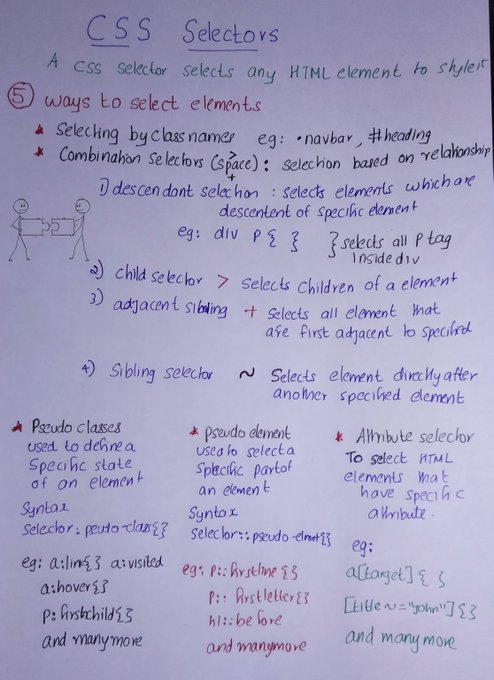 CSS Selectors
A CSS selector selects any HTML element to style it
⑤ ways to select elements
* Selecting by class names eg: .navbar, #heading
* Combination Selectors (space) > + : selection based on relationship
1) descendant selection : selects elements which are
descentent of specific element
eg: div p { } } selects all P tag
inside div
2) child selector > selects children of a element
3) adjacent sibling + selects all element that
are first adjacent to specified
4) Sibling selector ~ Selects element directly after
another specified element
* Pseudo classes
used to define a
specific state
of an element
Syntax
selector: peudo-class{}
eg: a:link{} a:visited
a:hover{}
p: firstchild{}
and many more
* pseudo element
used to select a
specific part of
an element
Syntax
selector:: pseudo-elment{}
eg: p:: firstline {}
p:: firstletter{}
h1:: before
and many more
* Attribute selector
To select HTML
elements that
have specific
attribute.
eg:
a[target] { }
[title ~= "john"] { }
and many more